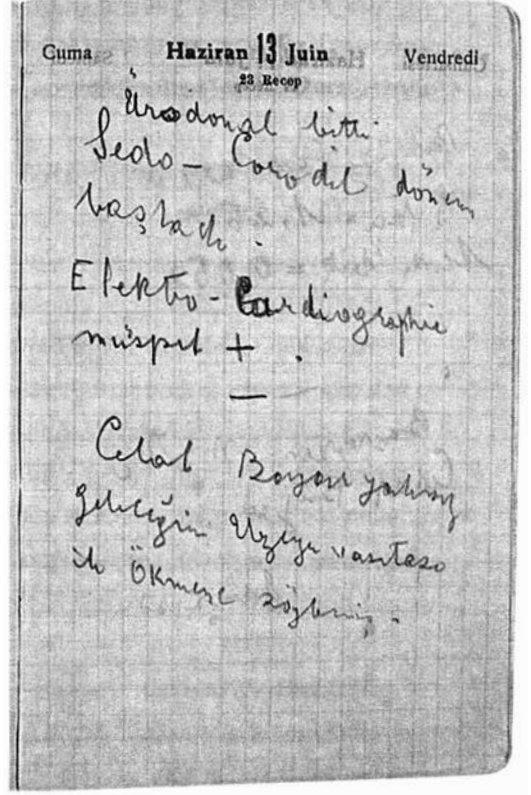 Cuma Haziran 13 Juin Vendredi
23 Recep
Ürodonal bitti
Sedo - Corodil dönem
başladı.
Elektro - Cardiographie
müspet + .
—
Celal Bayar yalnız
geleceğini Uzege vasıtası
ile Ökmene söylemiş.